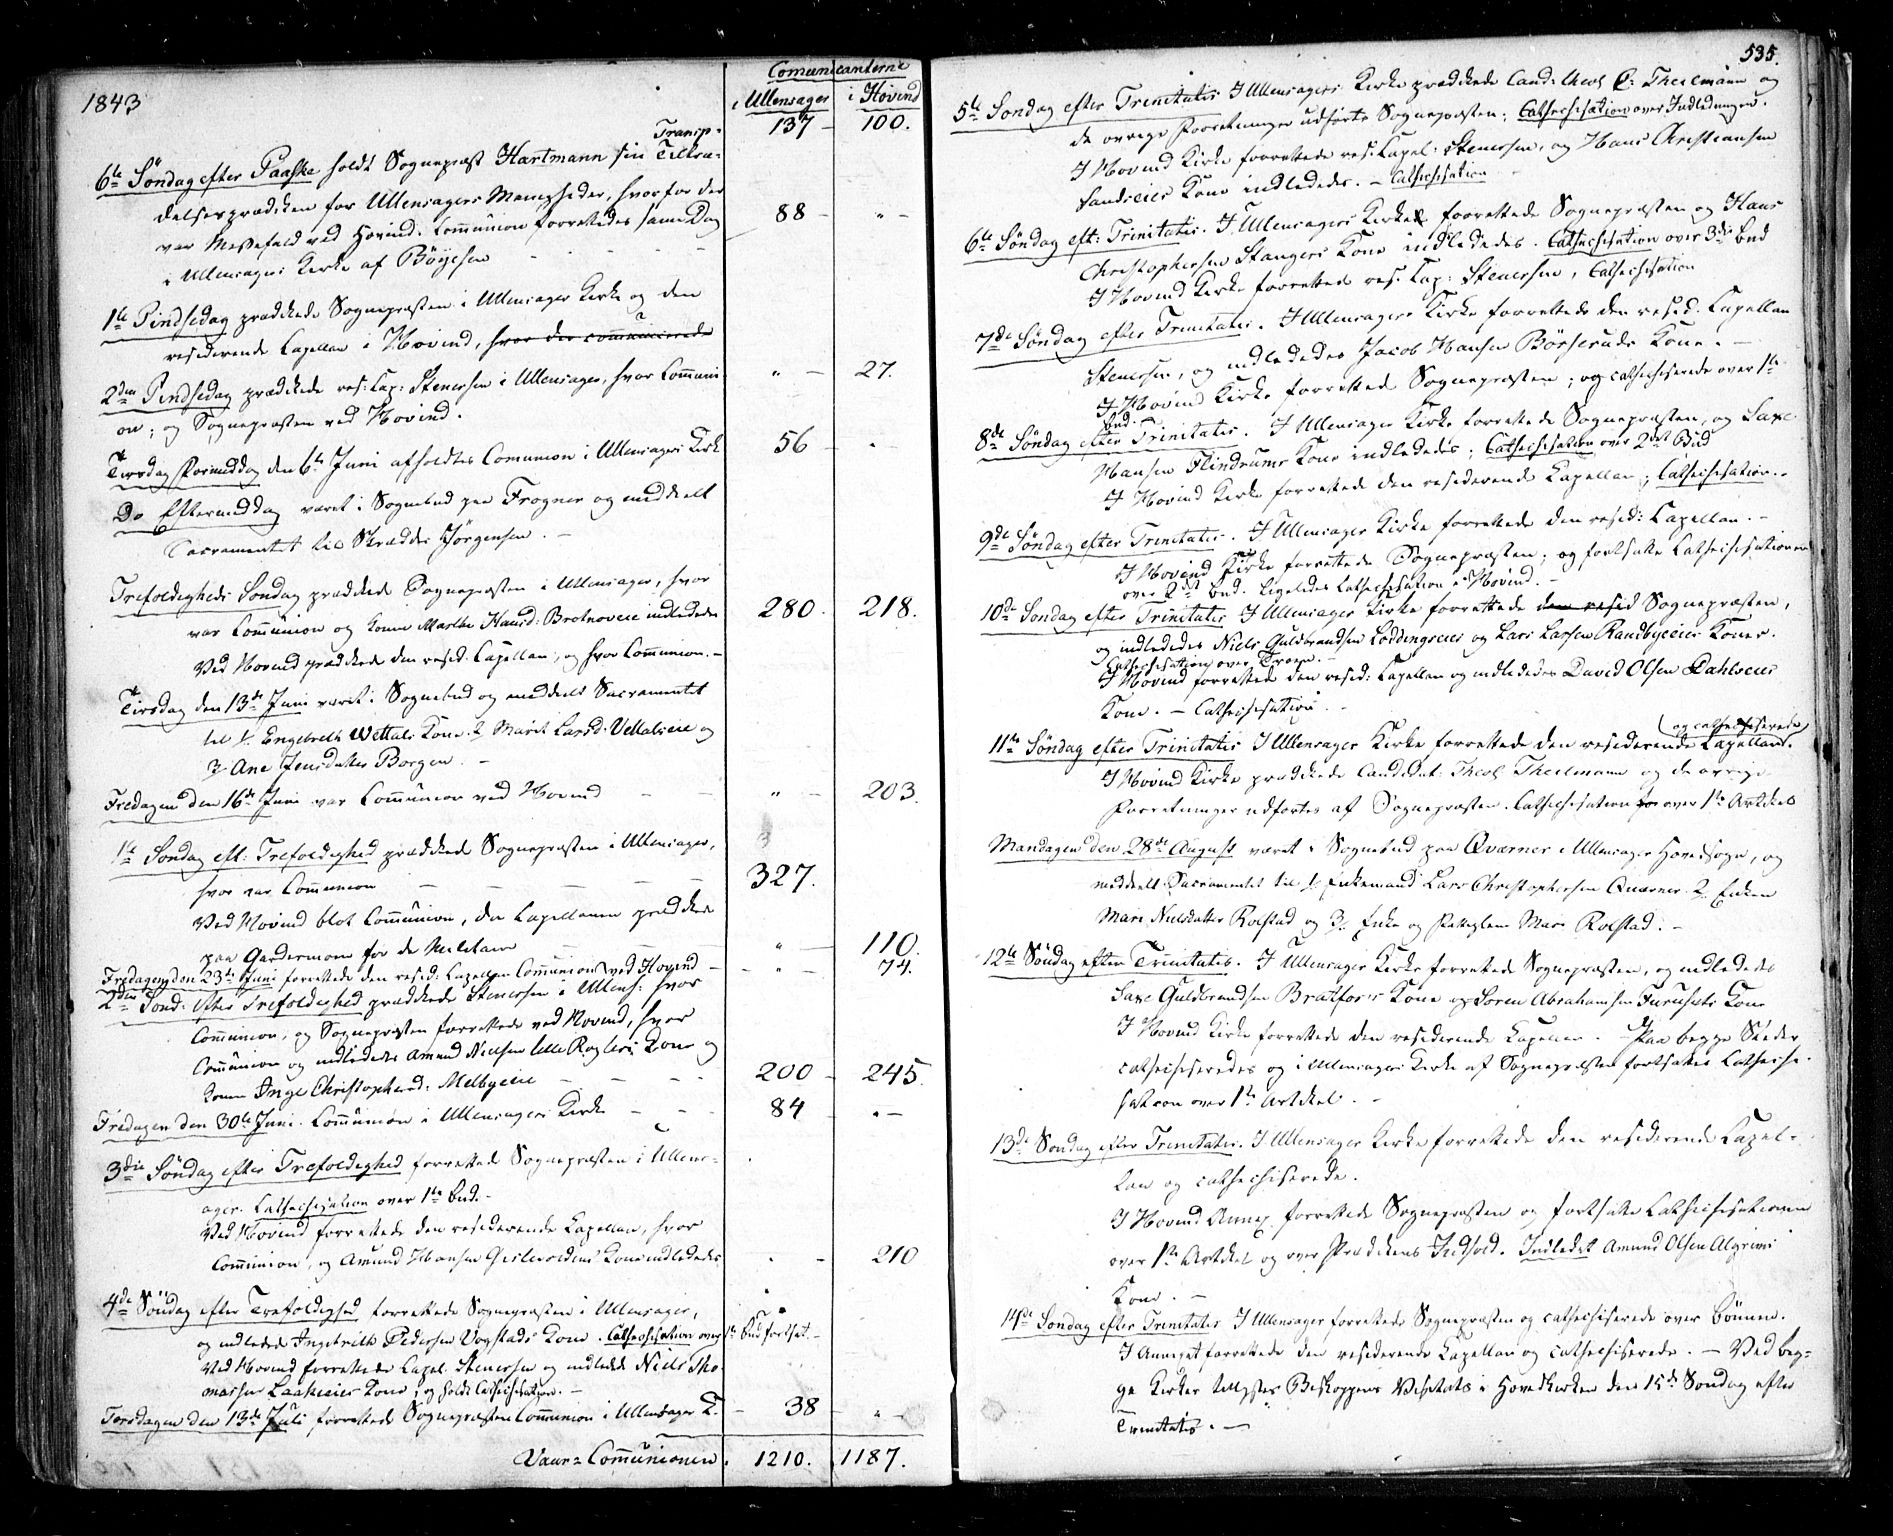 1843
Comunicanterne
i Ullensager i Hovind
Transp: 137 – 100.
6te Søndag efter Paaske holdt Sognepræst Hartmann sin Tiltræ-
delsesprædiken for Ullensagers Menigheder, hvorfor der
var Messefald ved Hovind. Communion forrettedes samme Dag 88 – " –
i Ullensagers Kirke af Böyesen
1te Pindsedag prædikede Sognepræsten i Ullensager Kirke og den
residerende Capellan i Hovind, hvor der communicerede
2den Pindsedag prædikede res: Cap: Stenersen i Ullensager, hvor Communi- " – 27.
on; og Sognepræsten ved Hovind.
Tirsdag Formiddag den 6te Juni afholdtes Comunion i Ullensagers Kirk 56 – "
Do Eftermiddag været i Sognebud paa Frogner og meddelt
Sacramentet til Skrædder Jörgensen. –
Trefoldigheds Søndag prædikede Sognepræsten i Ullensager, hvor
var Communion og Konen Marthe Hansd: Brotnoveie indlededes 280. 218.
Ved Hovind prædikede den resid. Capellan, og hvor Communion. –
Tirsdag den 13de Juni været i Sognebud og meddelt Sacramentet
til 1, Engebreth Wettals Kone. 2, Marit Larsd: Vettaleie og
3, Ane Jensdatter Borgen. –
Fredagen den 16de Juni var Communion ved Hovind – – " – 203.
1te Søndag eft: Trefoldighed prædikede Sognepræsten i Ullensager,
hvor var Communion – – – – – 327.
Ved Hovind blot Communion, da Capellanen prædikede
paa Gardermoen for de Militaire – – " – 110.
Fredagen den 23de Juni forrettede den resid. Capellan Communion ved Hovind – " – 74.
2den Sønd: efter Trefoldighed prædikede Stenersen i Ullens: hvor
Communion, og Sognepræsten forrettede ved Hovind, hvor
Communion og indlededes Amund Nielsen lille Kone og
Konen Inge Christophersd: Melbyeie – – – 200 – 245.
Fredagen den 30te Juni. Communion i Ullensagers Kirke – – 84 " –
3die Søndag efter Trefoldighed forrettede Sognepræsten i Ullens-
ager. Cathechisation over 1te Bud. –
Ved Hovind forrettede den residerende Capellan, hvor
Communion, og Amund Hansen Kone indlededes " – 210
4de Søndag efter Trefoldighed forrettede Sognepræsten i Ullensager,
og indledede Ingebrith Pedersen Vogstads Kone. Cathechisation over 1te Bud fortsat. –
Ved Hovind forrettede Capel. Stenersen og indledede Niels Tho-
massen Kone; og holdt Cathechisation. –
Torsdagen den 13de Juli forrettede Sognepræsten Communion i Ullensager K. – 38 – " –
Vaar-Communionen. 1210. 1187.
535.
5te Søndag efter Trinitatis I Ullensagers Kirke prædikede Cand: theol C: Theilmann og
de øvrige Forretninger udførte Sognepræsten; Cathechisation over Indledningen.
I Hovind Kirke forrettede res. Capel: Stenersen, og Hans Christiansen
Kone indlededes. – Cathechisation
6te Søndag eft: Trinitatis. I Ullensagers Kirke forrettede Sognepræsten og Hans
Christophersen Stangers Kone indlededes. Cathechisation over 3die Bud
I Hovind Kirke forrettede res. Cap: Stenersen, Cathechisation
7de Søndag efter Trinitatis. I Ullensagers Kirke forrettede den resid. Capellan
Stenersen, og indlededes Jacob Hansen Börseruds Kone. –
I Hovind Kirke forrettede Sognepræsten; og cathechiserede over 1te
Bud.
8de Søndag efter Trinitatis. I Ullensager Kirke forrettede Sognepræsten, og Saxe
Hansen Flindrums Kone indlededes; Cathechisation over 2det Bud
I Hovind Kirke forrettede den residerende Capellan; Cathechisation. –
9de Søndag efter Trinitatis. I Ullensager Kirke forrettede den resid: Capellan. –
I Hovind Kirke forrettede Sognepræsten; og fortsatte Cathechisationen
over 2det Bud. Ligeledes Cathechisation i Hovind. –
10de Søndag efter Trinitatis I Ullensager Kirke forrettede den resid Sognepræsten,
og indlededes Niels Guldbrandsen Loddingseies og Lars Larsen Randbyeies Koner.
Cathechisation over Troen. –
I Hovind forrettede den resid: Capellan og indlededes David Olsen Dahlseies
Kone. – Cathechisation. –
11te Søndag efter Trinitatis I Ullensager Kirke forrettede den residerende Capellan. og cathechiserede
I Hovind Kirke prædikede Candidat: Theol Theilmann og de øvrige
Forretninger udførtes af Sognepræsten. Cathechisation for over 1te Artikel
Mandagen den 28de August været i Sognebud paa Qværner i Ullensager Hovedsogn, og
meddeelt Sacramentet til 1, Enkemand Lars Christophersen Qværner. 2, Enken
Mari Nielsdatter Rolstad og 3, Enke og Mari Rolstad. –
12te Søndag efter Trinitatis. I Ullensager Kirke forrettede Sognepræsten, og indlededes
Saxe Guldbrandsen Bratfoss Kone og Søren Abrahamsen Furusets Kone
I Hovind Kirke forrettede den residerende Capellan. – Paa begge Steder
cathechiseredes og i Ullensagers Kirke af Sognepræsten fortsattes Cathechi-
sation over 1te Artikel. –
13de Søndag efter Trinitatis. I Ullensager Kirke forrettede den residerende Capel-
lan og cathechiserede.
I Hovind Annex forrettede Sognepræsten og fortsatte Cathechisationen
over 1te Artikel og over Prædikens Indhold. Indledet Amund Olsen Algrims
Kone. –
14de Søndag efter Trinitatis I Ullensager forrettede Sognepræsten og cathechiserede over Bönnen.
I Annexet forrettede den residerende Capellan og cathechiserede. – Ved beg-
ge Kirker tillystes Biskoppens Visitats i Hovedkirken den 15de Søndag efter
Trinitatis. –